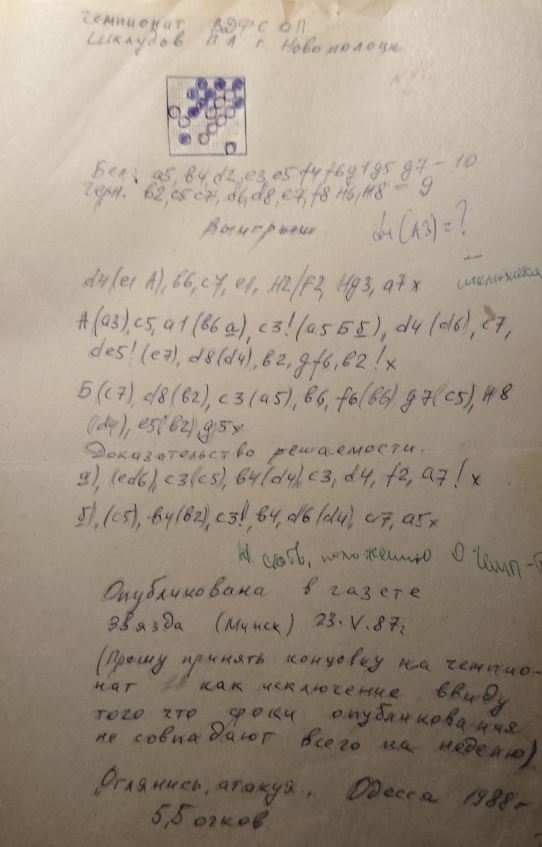 Чемпионат ВДФС ОП
Шклудов П А г. Новополоцк
Бел: а5, в4, d2, е3, е5 f4 f6 g1 g5 g7 - 10
Черн. в2, с5 с7, d6, d8, е7, f8 н6, н8 = 9
Выигрыш
(А3) = ?
d4 (е1 А), в6, с7, е1, н2/f2, нg3, а7 х
А (а3), с5, а1 (в6 а), с3! (а5 Б б), d4 (d6), с7,
de5! (е7), d8 (d4), в2, gf6, в2! х
Б (с7), d8 (в2), с3 (а5), в6, f6 (в6) g7 (с5), н8
(d4), е5 (в2) g5х
Доказательство решаемости.
а), (ed6), с3 (с5), в4 (d4), с3, d4, f2, а7! х
б), (с5), в4 (в2), с3!, в4, d6 (d4), с7, а5х
положению О Чемп-
Опубликована в газете
Звязда (Минск) 23.V.87г
(Прошу принять концовку на чемпио-
нат как исключение ввиду
того что сроки опубликования
не совпадают всего на неделю).
Оглянись, атакуя. Одесса 1988г
5,5 очков